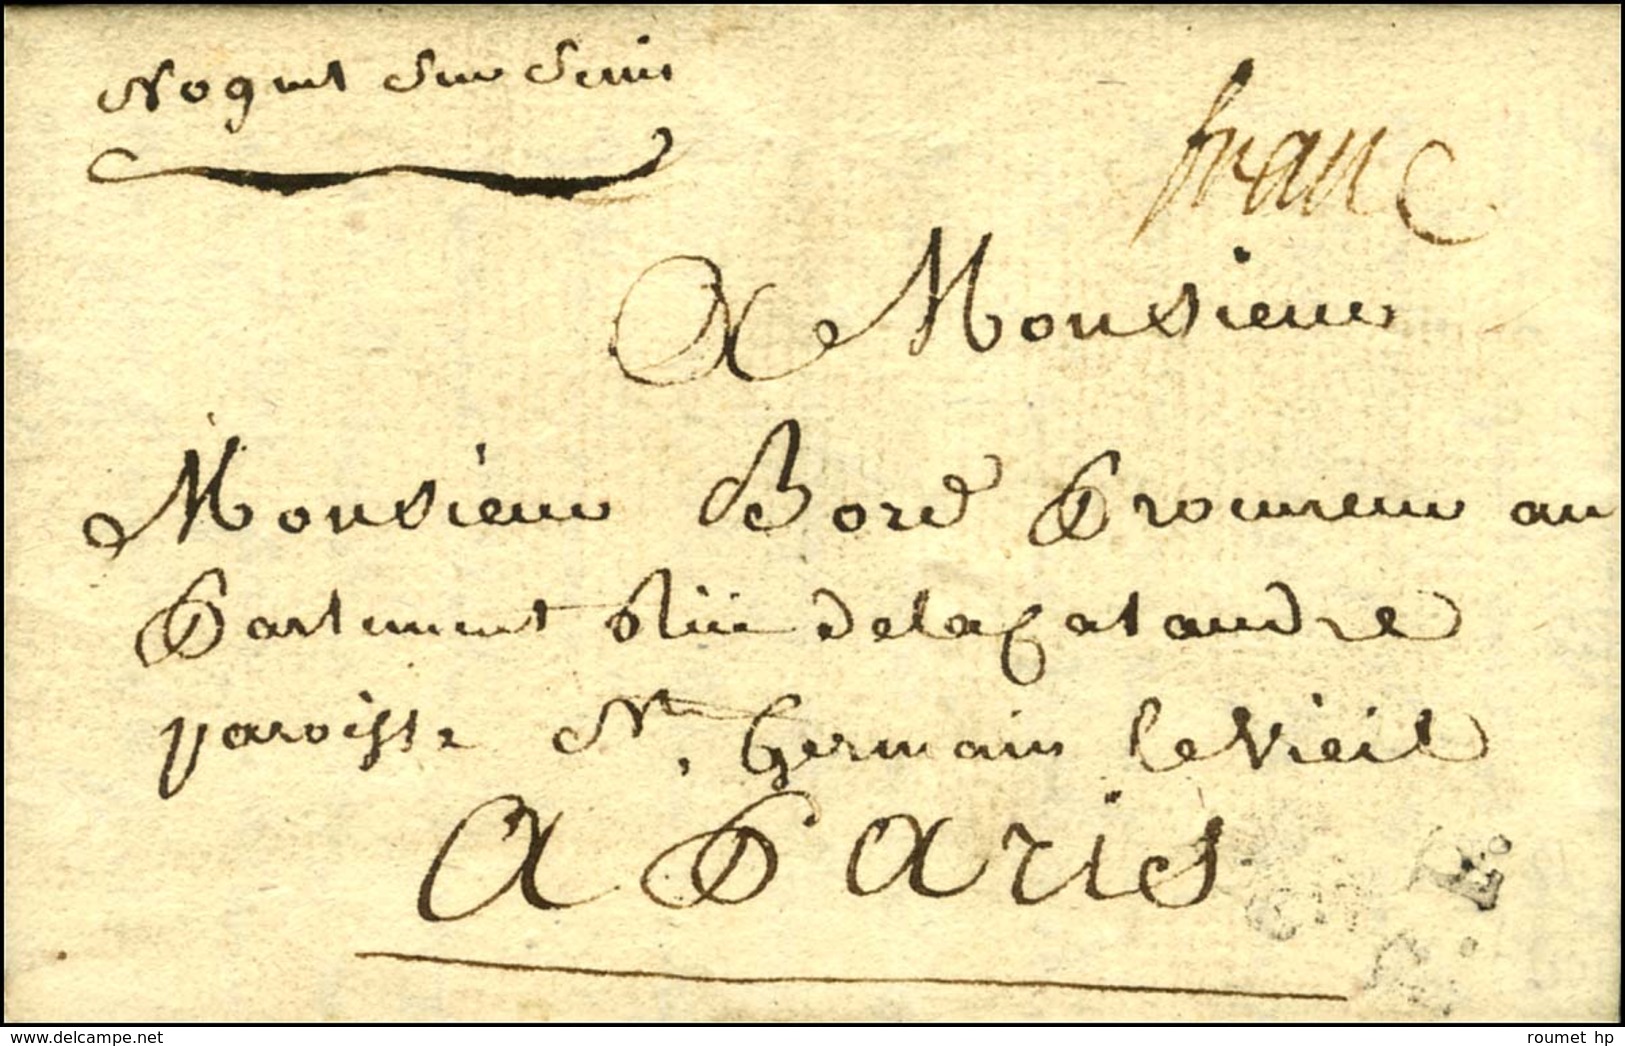 Nogent sur seine
franc
A Monsieur
Monsieur Bord Procureur au
Parlement Rüe de la Calandre
paroisse St. Germain le Vieil
A Paris
delcampe.net
roumet hp